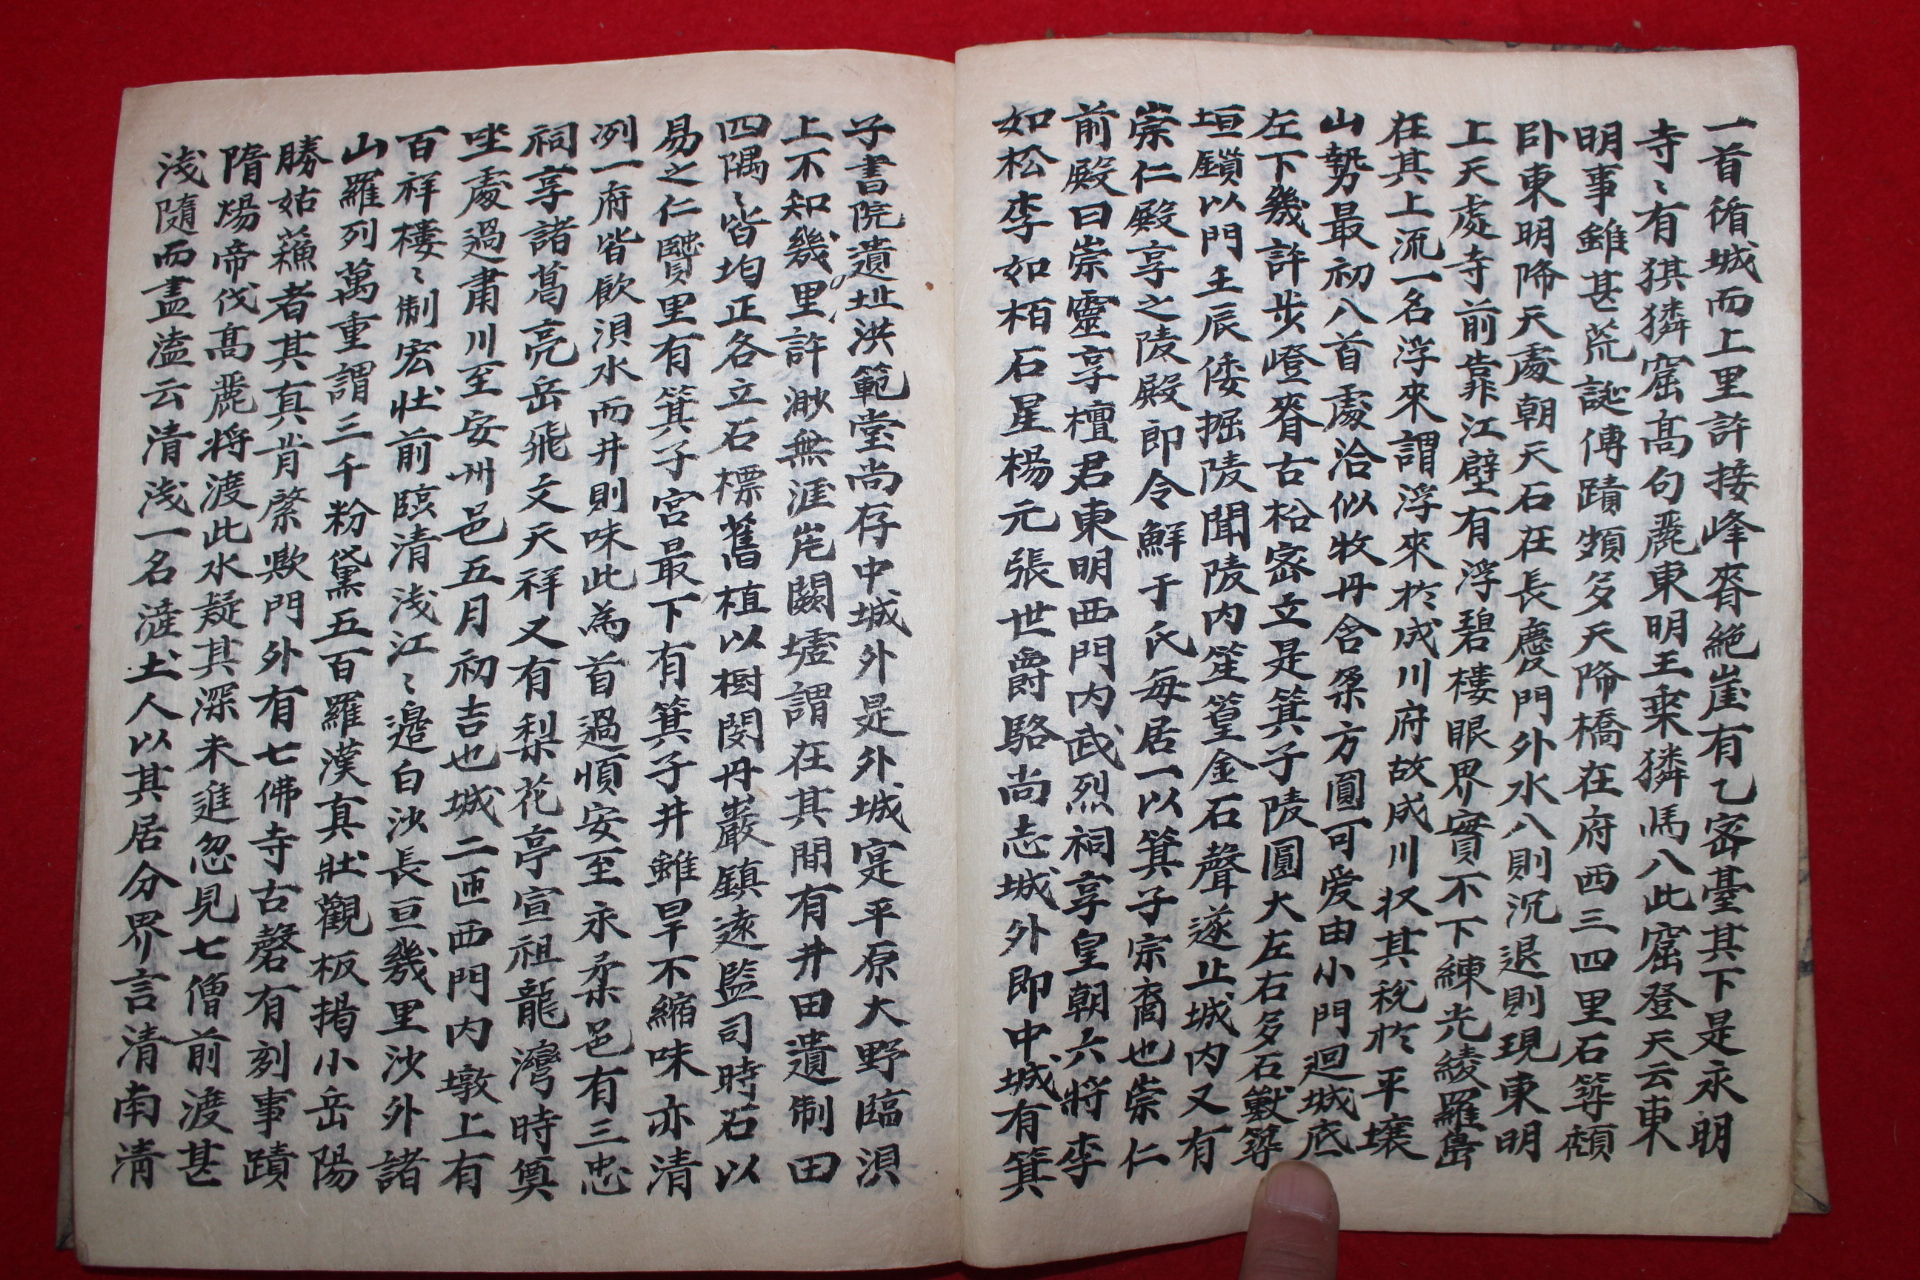 一首循城而上里許接峰脊絶崖有乙密臺其下是永明
寺〻有猉獜窟高句麗東明王乗獜馬八此窟登天云東
明事雖甚荒誕傳蹟頗多天降橋在府西三四里石築頹
卧東明降天處朝天石在長慶門外水八則沉退則現東明
上天處寺前靠江壁有浮碧樓眼界實不下練光綾羅島
在其上流一名浮來謂浮來於成川府故成川収其稅於平壤
山勢最初八首處洽似牧丹含蘂方圓可爱由小門迴城底
左下幾許步嶝脊古松密立是箕子陵圓大左右多石獸築
垣鎖以門壬辰倭掘陵聞陵内笙篁金石聲遂止城内又有
崇仁殿享之陵殿即令鮮于氏每居一以箕子宗裔也崇仁
前殿曰崇靈享檀君東明西門内武烈祠享皇朝六將李
如松李如栢石星楊元張世爵駱尚志城外即中城有箕
子書院遺址洪範堂尚存中城外是外城寔平原大野臨浿
上不知幾里許渺無涯岸闕墟謂在其間有井田遺制田
四隅〻皆均正各立石標舊植以樹閔丹巖鎮遠監司時石以
易之仁賢里有箕子宮最下有箕子井雖旱不縮味亦清
冽一府皆飮浿水而井則味此為首過順安至永柔邑有三忠
祠享諸葛亮岳飛文天祥又有梨花亭宣祖龍灣時奠
坐處過肅川至安州邑五月初吉也城二匝西門内墩上有
百祥樓〻制宏壯前臨清浅江〻邊白沙長亘幾里沙外諸
山羅列萬重謂三千粉黛五百羅漢真壯觀板揭小岳陽
勝姑蘓者其真肯綮歟門外有七佛寺古磬有刻事蹟
隋煬帝伐高麗将渡此水疑其深未進忽見七僧前渡甚
浅隨而盡溘云清浅一名漄土人以其居分界言清南清